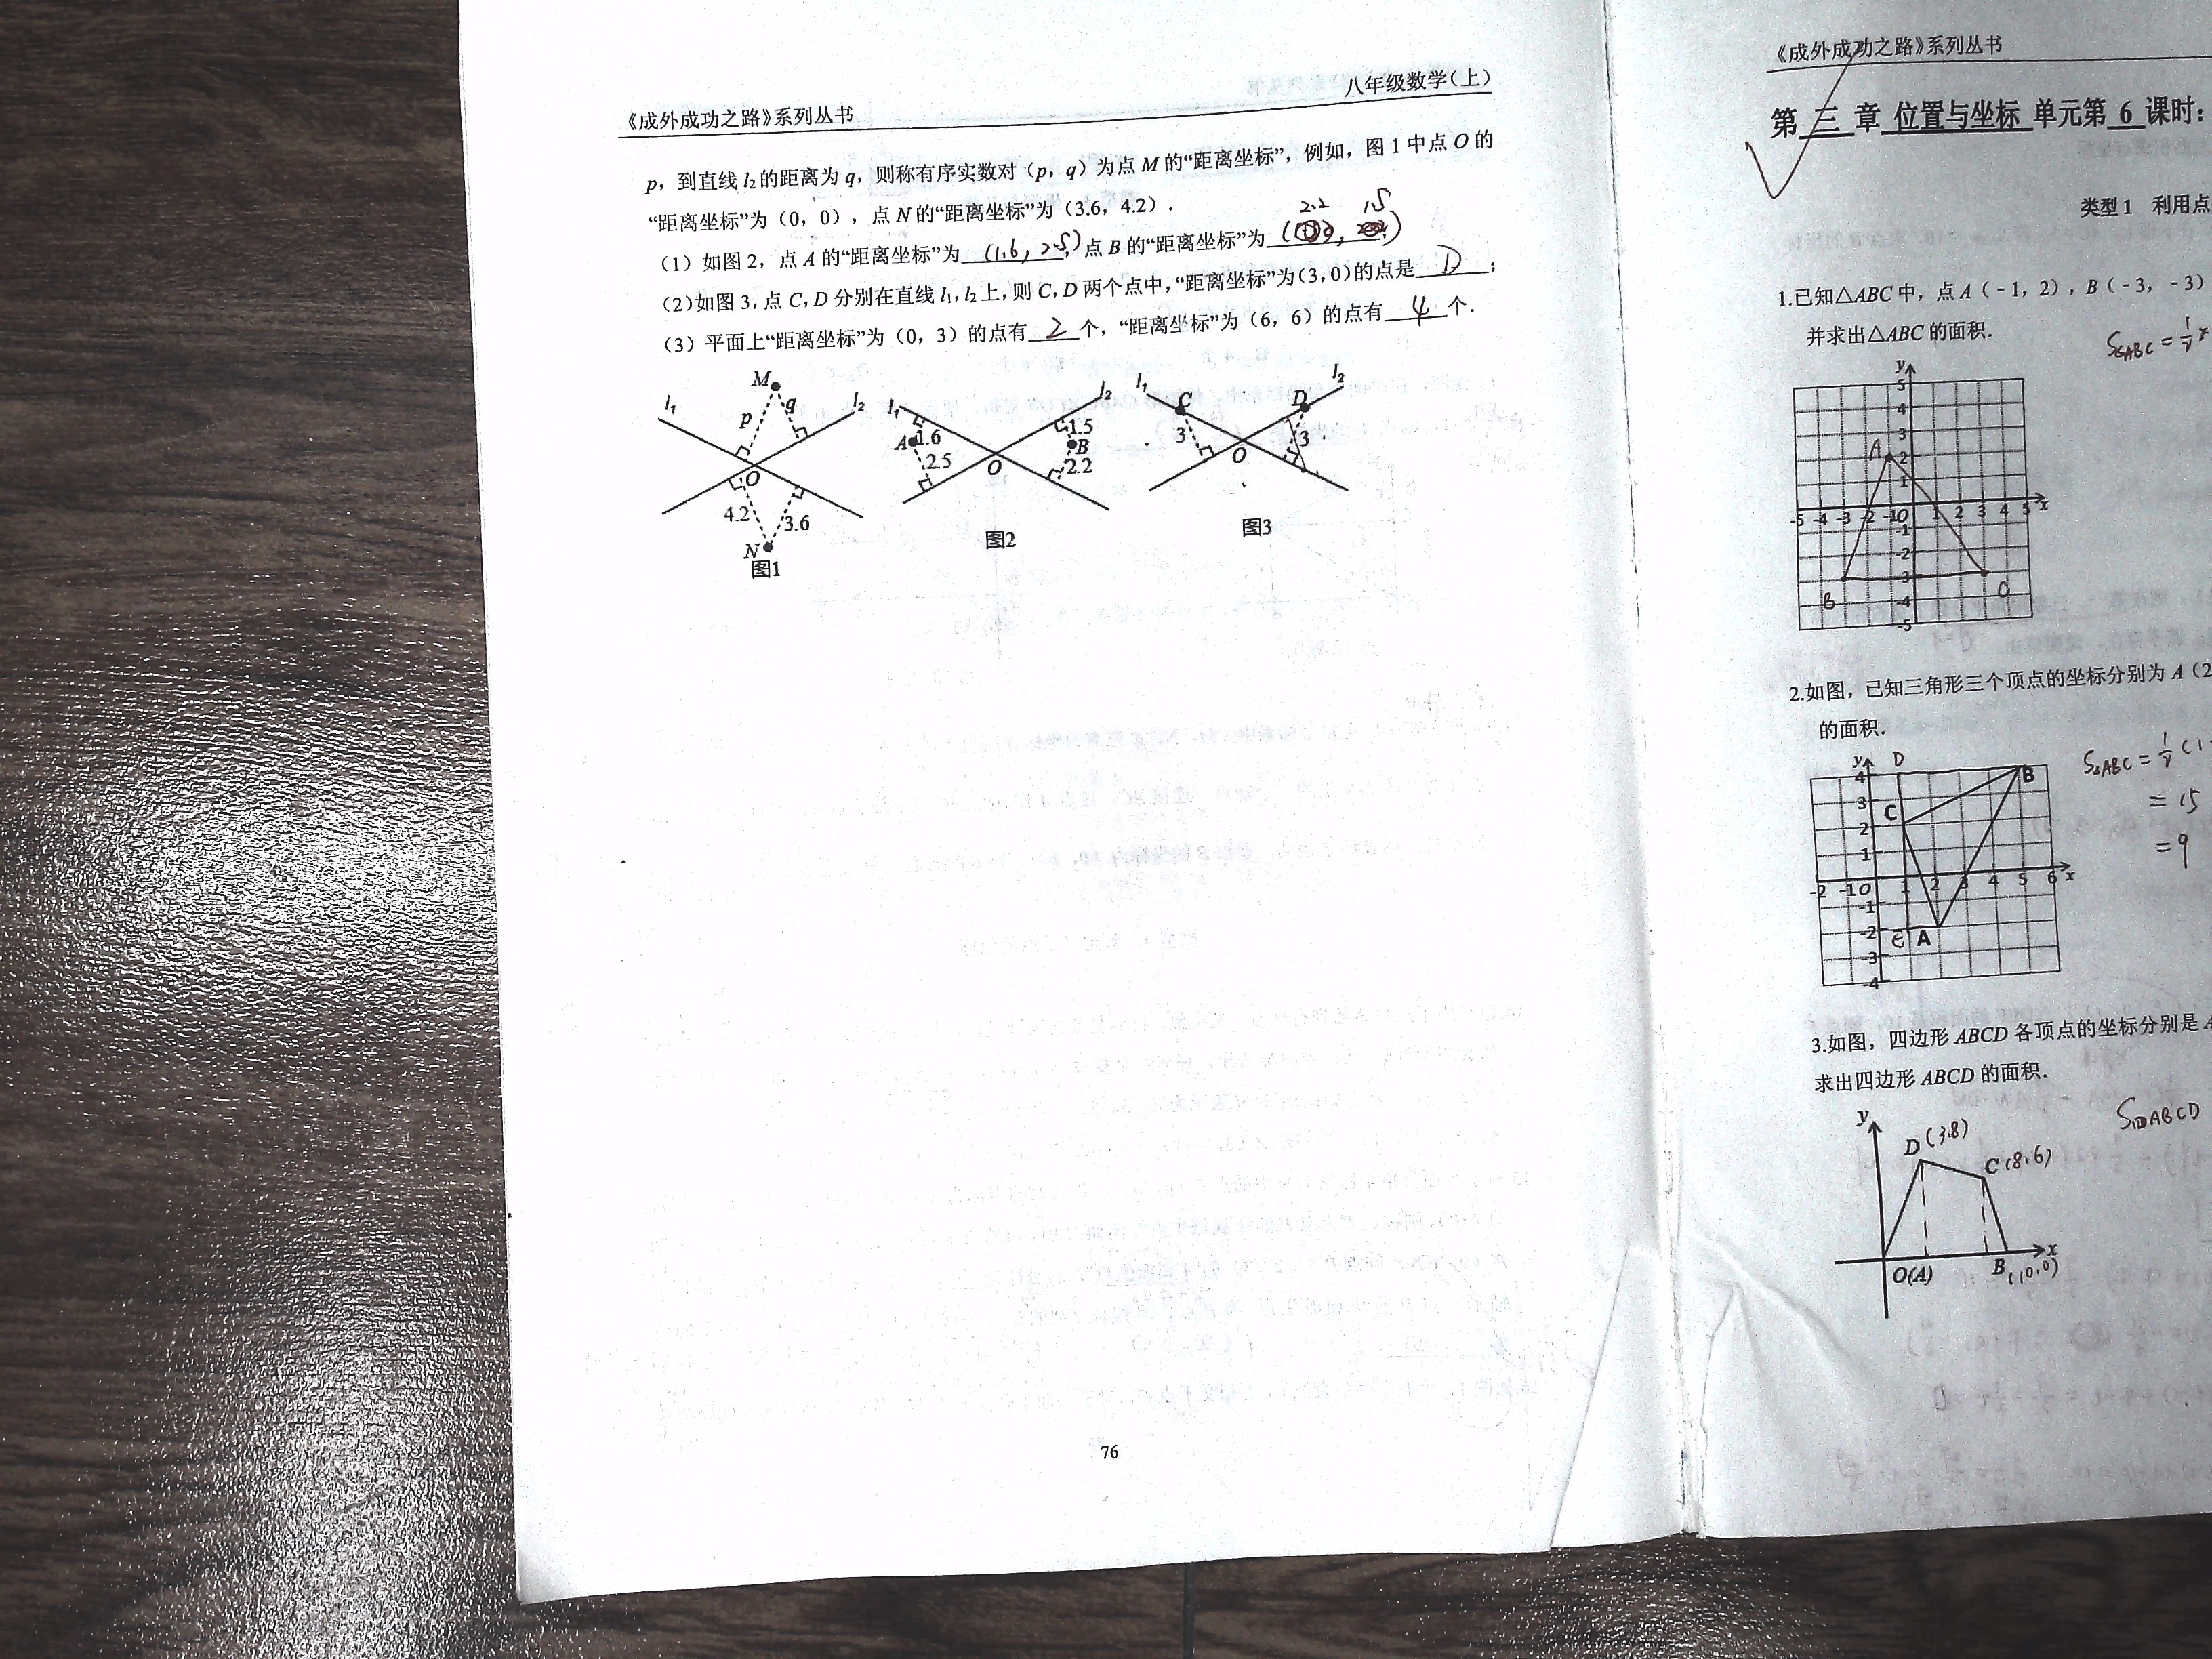 《成外成功之路》系列丛书
八年级数学（上）
p，到直线 l₂的距离为 q，则称有序实数对（p，q）为点 M 的“距离坐标”，例如，图 1 中点 O 的
“距离坐标”为（0，0），点 N 的“距离坐标”为（3.6，4.2）.
2.2 1.5
（1）如图 2，点 A 的“距离坐标”为 (1.6, 2.5) ，点 B 的“距离坐标”为 ( , )
（2）如图 3，点 C，D 分别在直线 l₁，l₂上，则 C，D 两个点中，“距离坐标”为（3，0）的点是 D ；
（3）平面上“距离坐标”为（0，3）的点有 2 个，“距离坐标”为（6，6）的点有 4 个.
M
l₁ p q l₂
O
4.2 3.6
N
图1
l₁ l₂
A 1.6 1.5 B
2.5 O 2.2
图2
l₁ l₂
C D
3 O 3
图3
76
《成外成功之路》系列丛书
第 三 章 位置与坐标 单元第 6 课时：
类型 1 利用点
1.已知△ABC 中，点 A（-1，2），B（-3，-3）
并求出△ABC 的面积.
y
5
4
3
A 2
1
-5 -4 -3 -2 -1 O 1 2 3 4 5 x
-1
-2
-3
B -4 C
-5
2.如图，已知三角形三个顶点的坐标分别为 A（2
的面积.
S△ABC = ½ (1
= 15
= 9
y D
4 B
3 C
2
1
-2 -1 O 1 2 3 4 5 6 x
-1
-2 E A
-3
-4
3.如图，四边形 ABCD 各顶点的坐标分别是 A
求出四边形 ABCD 的面积.
y
D (3,8)
C (8,6)
O(A) B (10,0) x